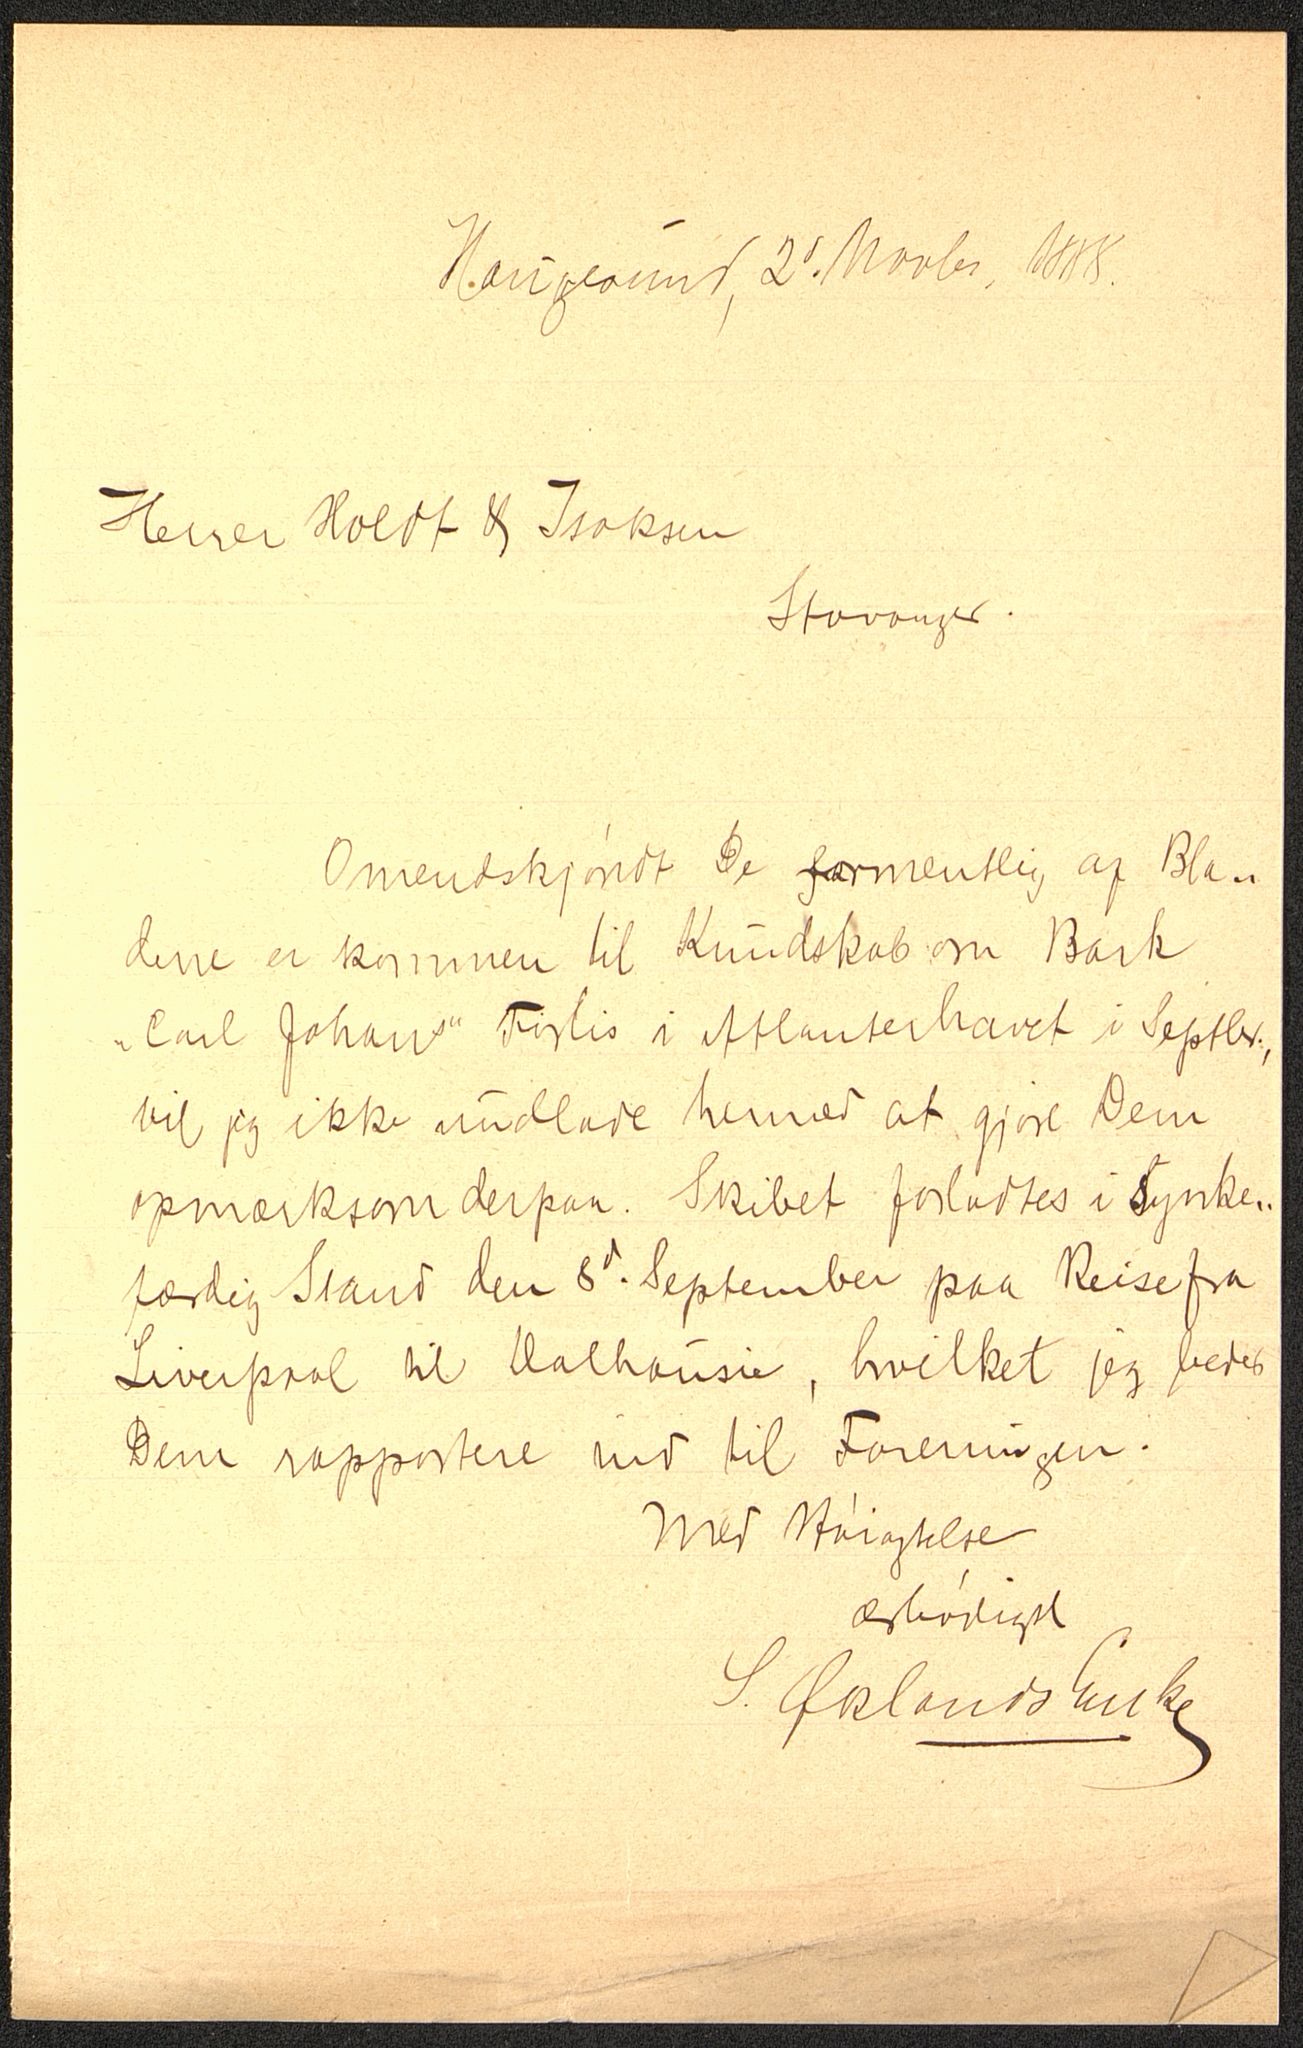 Haugesund, 2d. Novbr. 1888.
Herrer Holdt & Isaksen
Stavanger.
Omendskjöndt De formentlig af Bla-
dene er kommen til Kundskab om Bark
„Carl Johans" Forlis i Atlanterhavet i Septbr.,
vil jeg ikke undlade hermed at gjöre Dem
opmærksom derpaa. Skibet forlodtes i synke-
færdig Stand den 8d. September paa Reise fra
Liverpool til Dalhousie, hvilket jeg beder
Dem rapportere ind til Foreningen.
Med Höiagtelse
ærbödigst
S. Øklands Enke